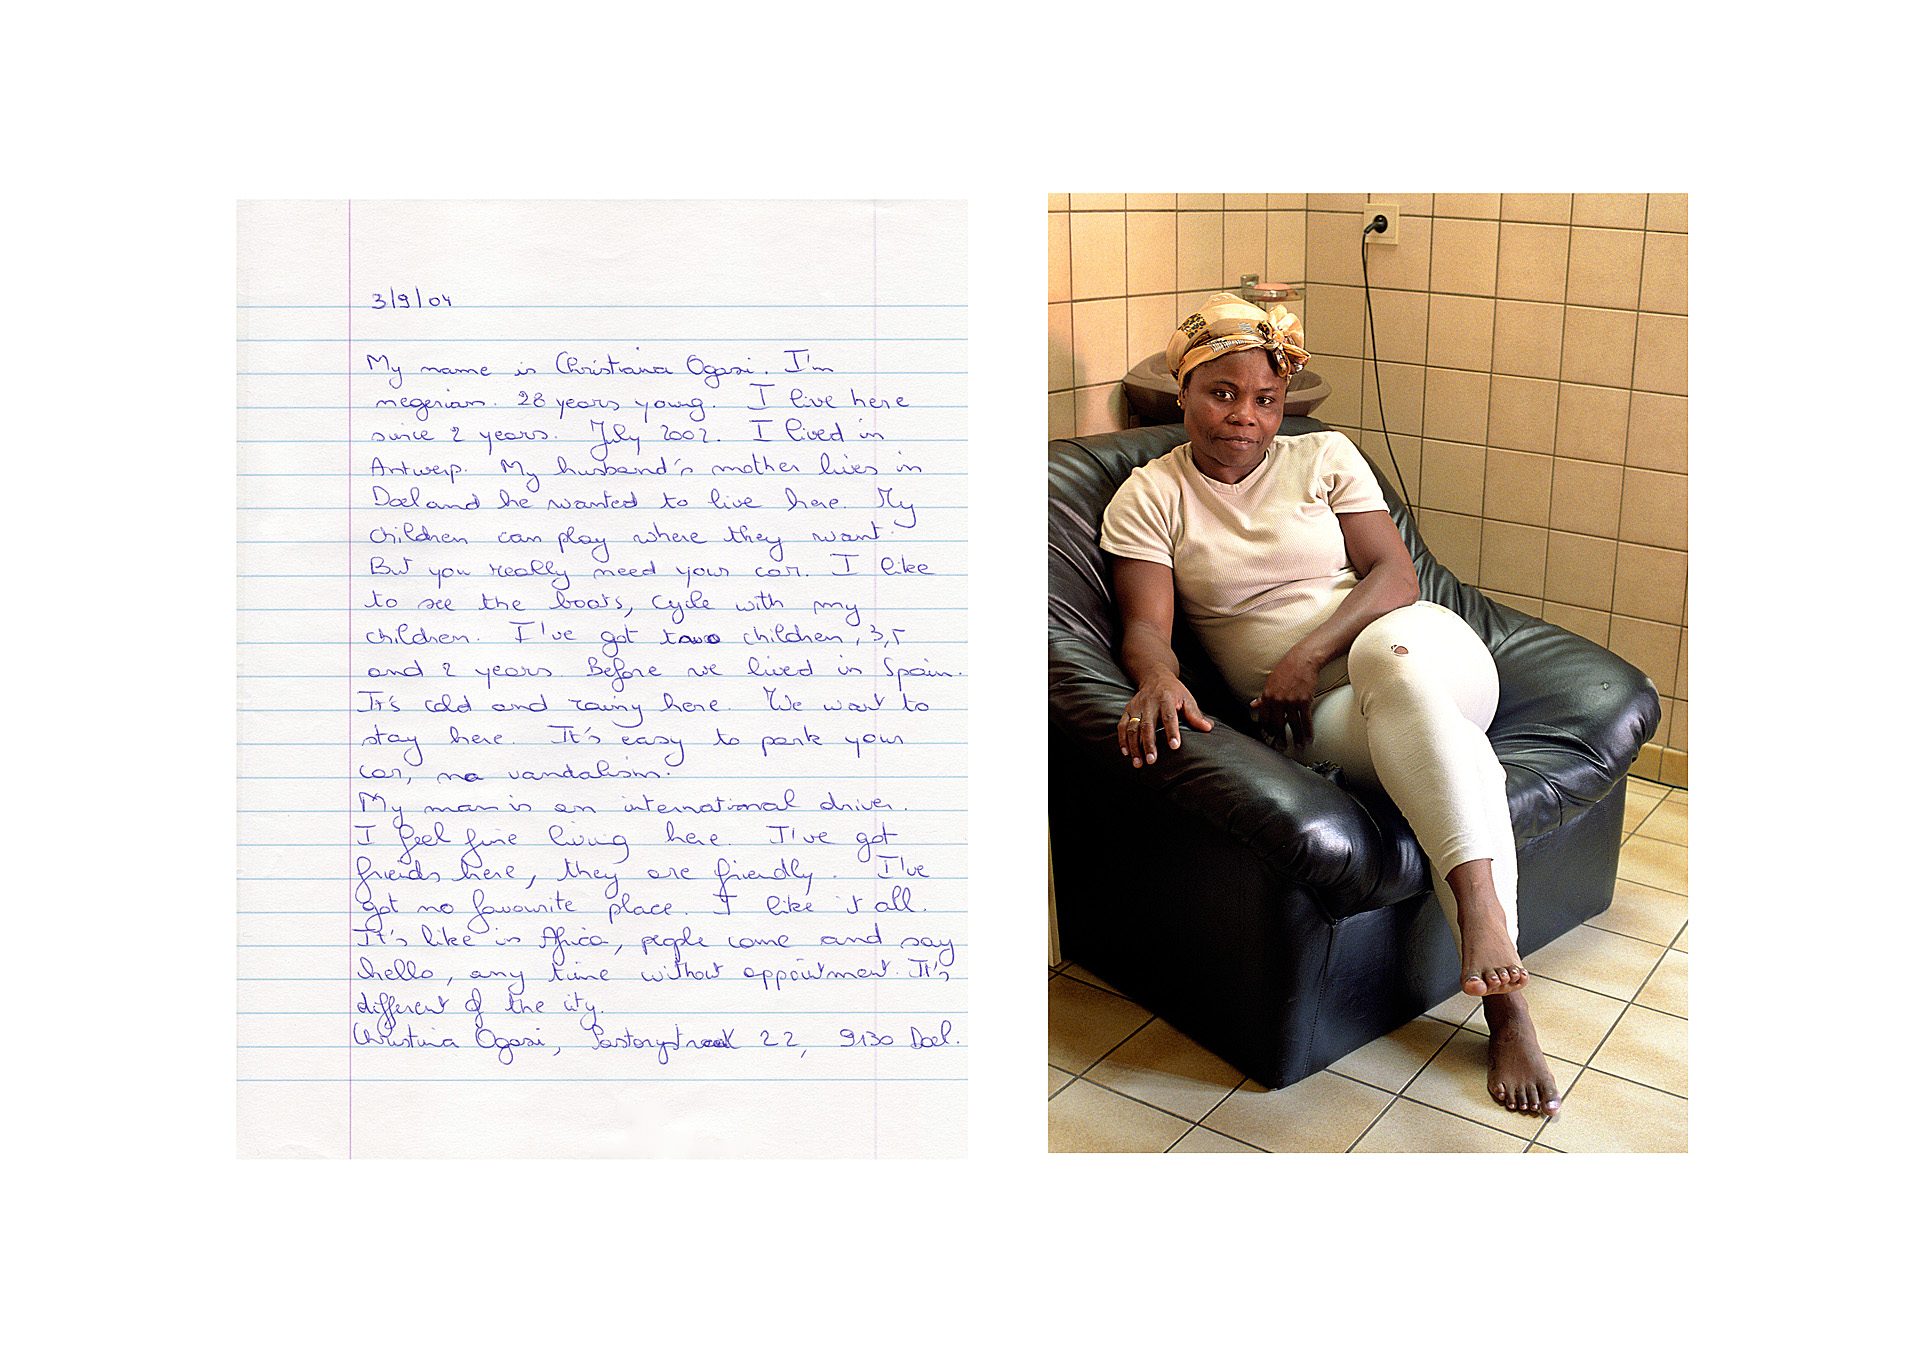 3/9/04
My name is Christiana Ogasi. I'm
negerian. 28 years young. I live here
since 2 years. July 2002. I lived in
Antwerp. My husband's mother lives in
Doel and he wanted to live here. My
children can play where they want.
But you really need your car. I like
to see the boats, cycle with my
children. I've got two children, 3,5
and 2 years. Before we lived in Spain.
It's cold and rainy here. We want to
stay here. It's easy to park your
car, no vandalism.
My man is an international driver.
I feel fine living here. I've got
friends here, they are friendly. I've
got no favourite place. I like it all.
It's like in Africa, people come and say
hello, any time without appointment. It's
different of the city.
Christina Ogasi, Pastorystraat 22, 9130 Doel.